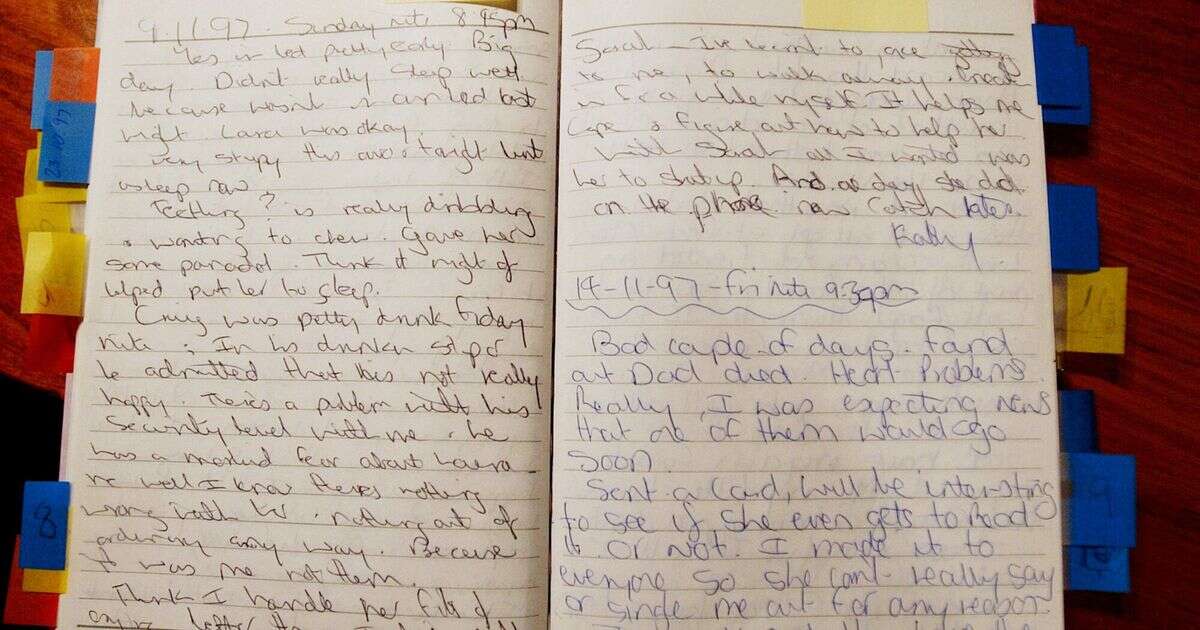 9.11.97. Sunday nite 8.45pm
Yes in bed pretty early. Big
day. Didn't really sleep well
because wasn't last
night Laura was okay.
very this ave & tonight
asleep now
Teething? is really dribbling
& wanting to chew. Gave her
some panadol. Think it might of
helped put her to sleep.
Craig was pretty drunk Friday
nite; In his drunken
he admitted that he's not really
happy. There's a problem with his
Security level with me. he
has a fear about Laura -
me well I know theres nothing
wrong with her. nothing out of
ordinary any way. Because
it was me not them.
Think I handle her fits of
better
Sarah - I've learnt to
to me, to walk away
for a while myself. It helps me
Cope & figure out how to help her
With Sarah all I wanted was
her to shut up. And one day she did.
on the phone now Catch later.
Kathy
14-11-97 - Fri nite 9.30pm
Bad couple of days. Found
out Dad died. Heart Problems.
Really, I was expecting news
that one of them would go
soon.
Sent a Card, will be interesting
to see if she even gets to Read
it or Not. I made it to
everyone so she can't really say
or single me out for any reason.